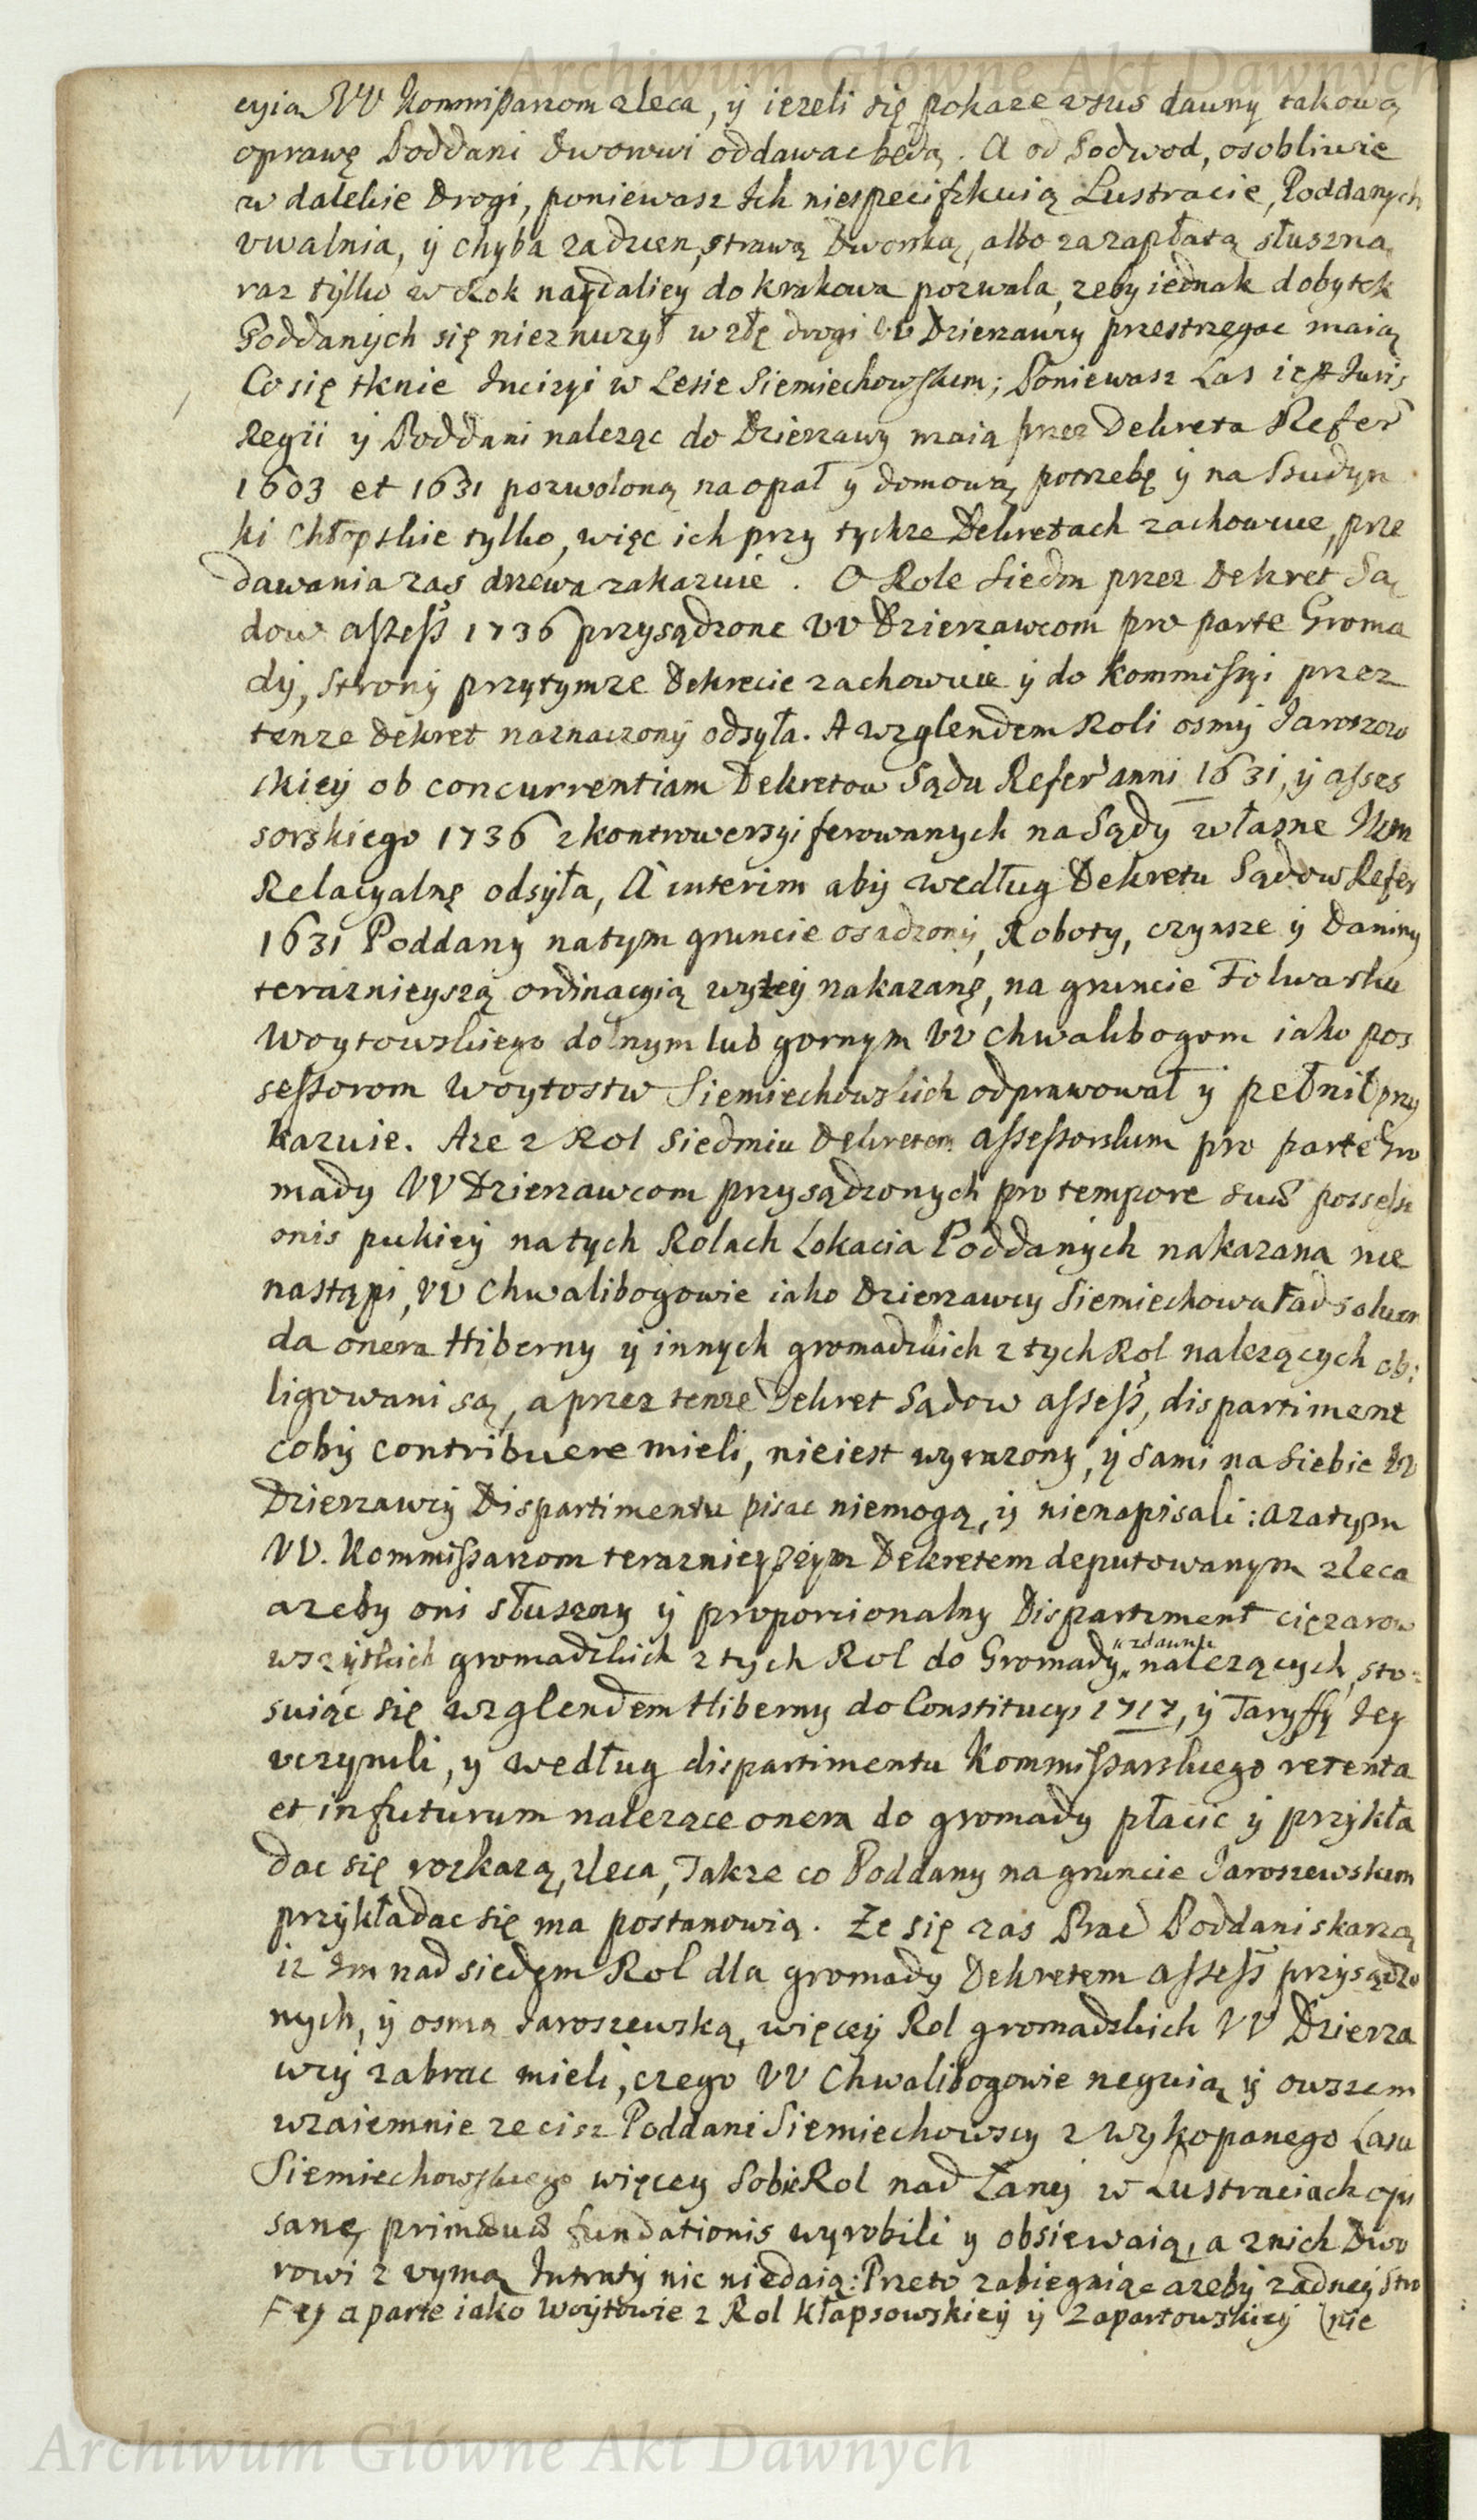 Archiwum Główne Akt Dawnych
cyią VV Kommissarzom zleca, ÿ iezeli się pokaze vsus dawny takową
oprawę Poddani Dworowi oddawac będą. A od Podwod, osobliwie
w dalekie Drogi, poniewasz Ich niespecifikuią Lustracie, Poddanych
vwalnia, ÿ chyba zadzien, strawą Dworską, albo zazapłatą słuszną
raz tÿlko w Rok naÿdaliey do Krakowa pozwala, zeby iednak dobytek
Poddanÿch się nieznuzÿł w złę drogi VV Dzierzawcy przestrzegac maią
Co się tknie Incizyi w Lesie Siemiechowskim; Poniewasz Las iest Juris
Regii ÿ Poddani naleząc do Dzierzawy maią przez Dekreta Refer
1603 et 1631 pozwoloną na opał ÿ domową potrzebę ÿ na Budyn
ki Chłopskie tylko, więc ich przy tychze Dekretach zachowuie, prze
dawania zas drzewa zakazuie. O Role Siedm przez Dekret Są
dow assess 1736 przysądzone VV Dzierzawcom pro parte Groma
dÿ, Stronÿ przÿtymze Dekrecie zachowuie ÿ do Kommissyi przez
tenze Dekret naznaczonÿ odsyła. A wzglendem Roli osmÿ Jaroszow
skiey ob concurrentiam Dekretow Sądu Refer anni 1631, ÿ asses
sorskiego 1736 z kontrowersyi ferowanych na Sądy własne
Relacyalnę odsÿła, A interim abÿ według Dekretu Sądow Refer
1631 Poddany natym gruncie osadzonÿ, Roboty, czynsze ÿ Daniny
teraznieyszą ordinacyią wyzeÿ nakazanę, na gruncie Folwarku
Woytowskiego dolnym lub gornym VV Chwalibogom iako pos
sessorom Woytostw Siemiechowskich odprawował ÿ pełnił przy
kazuie. Aze z Rol Siedmiu Dekretem assessorskim pro parte Gro
mady VV Dzierzawcom przysądzonych pro tempore suæ possessi
onis pukieÿ natych Rolach Lokacia Poddanÿch nakazana nie
nastąpi, VV Chwalibogowie iako Dzierzawcy Siemiechowa ad soluen
da onera Hiberny ÿ innych gromadzkich z tych Rol nalezących ob:
ligowani są, a przez tenze Dekret Sądow assess, dispartiment
cobÿ contribuere mieli, nieiest wyrazony, ÿ Sami na Siebie VV
Dzierzawcÿ Dispartimentu pisac niemogą, ÿ nienapisali: azatym
VV. Kommissarzom teraznieyszym Dekretem deputowanym zleca
azeby oni słuszny ÿ proporcionalny Dispartiment ciężarow
wszÿtkich gromadzkich z tych Rol do Gromady "zdawna" nalezących, sto=
suiąc się wzglendem Hiberny do Constitucyi 1717, ÿ Taryffy Jey
vczynili, y według dispartimentu Kommissarskiego retenta
et in futurum nalezące onera do gromady płacic ÿ przykła
dac się rozkazą, zleca, Takze co Poddany na gruncie Jaroszewskim
przÿkładac się ma postanowią. Ze się zas Prac Poddani skarzą
iz Im nad siedęm Rol dla gromady Dekretem assess przÿsądzo
nych, ÿ osmą Jaroszewską, więceÿ Rol gromadzkich VV Dzierza
wcÿ zabrac mieli, czego VV Chwalibogowie neguią ÿ owszem
wzaiemnie ze cisz Poddani Siemiechowscy z wykopanego Lasu
Siemiechowskiego więcey Sobie Rol nad Łany w Lustraciach opi
sanę primæuæ fundationis wyrobili y obsiewaią, a znich Dwo
rowi z vymą Intratÿ nic niedaią: Przeto zabiegaiąc azebÿ zadneÿ Stro
ey a parte iako Woÿtowie z Rol Kłapsowskieÿ ÿ Zapartowskieÿ (nie
Archiwum Główne Akt Dawnych